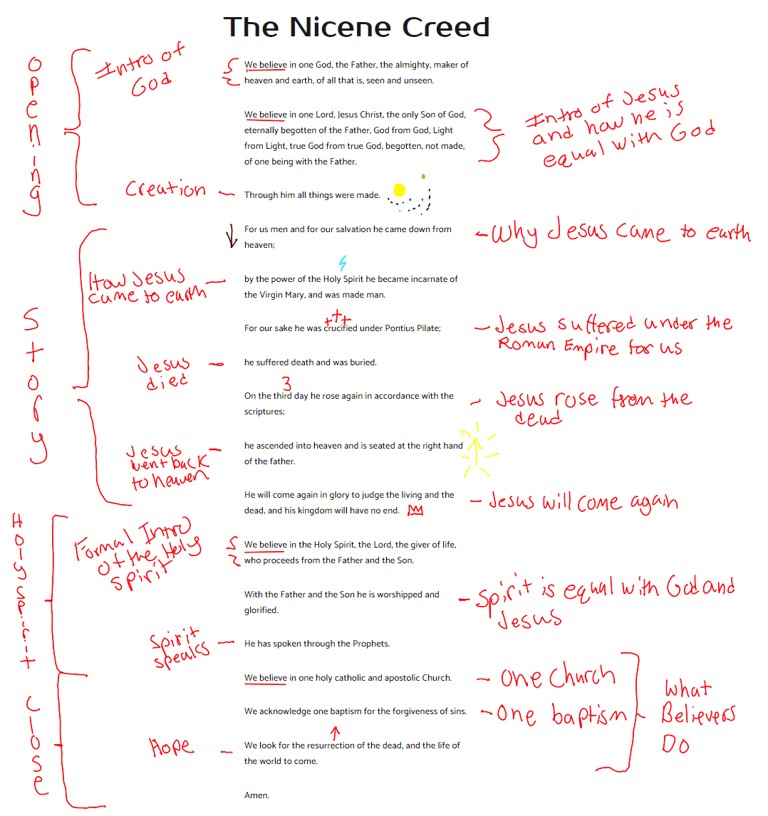 The Nicene Creed
Opening
Intro of
God
We believe in one God, the Father, the almighty, maker of
heaven and earth, of all that is, seen and unseen.
We believe in one Lord, Jesus Christ, the only Son of God,
eternally begotten of the Father, God from God, Light
from Light, true God from true God, begotten, not made,
of one being with the Father.
Intro of Jesus
and how he is
equal with God
Creation
Through him all things were made.
Story
For us men and for our salvation he came down from
heaven;
Why Jesus came to earth
How Jesus
came to earth
by the power of the Holy Spirit he became incarnate of
the Virgin Mary, and was made man.
For our sake he was crucified under Pontius Pilate;
Jesus suffered under the
Roman Empire for us
Jesus
died
he suffered death and was buried.
3
On the third day he rose again in accordance with the
scriptures;
Jesus rose from the
dead
Jesus
went back
to heaven
he ascended into heaven and is seated at the right hand
of the father.
He will come again in glory to judge the living and the
dead, and his kingdom will have no end.
Jesus will come again
Holy Spirit
Formal Intro
of the Holy
Spirit
We believe in the Holy Spirit, the Lord, the giver of life,
who proceeds from the Father and the Son.
With the Father and the Son he is worshipped and
glorified.
Spirit is equal with God and
Jesus
Spirit
speaks
He has spoken through the Prophets.
Close
We believe in one holy catholic and apostolic Church.
One Church
We acknowledge one baptism for the forgiveness of sins.
One baptism
What
Believers
Do
Hope
We look for the resurrection of the dead, and the life of
the world to come.
Amen.